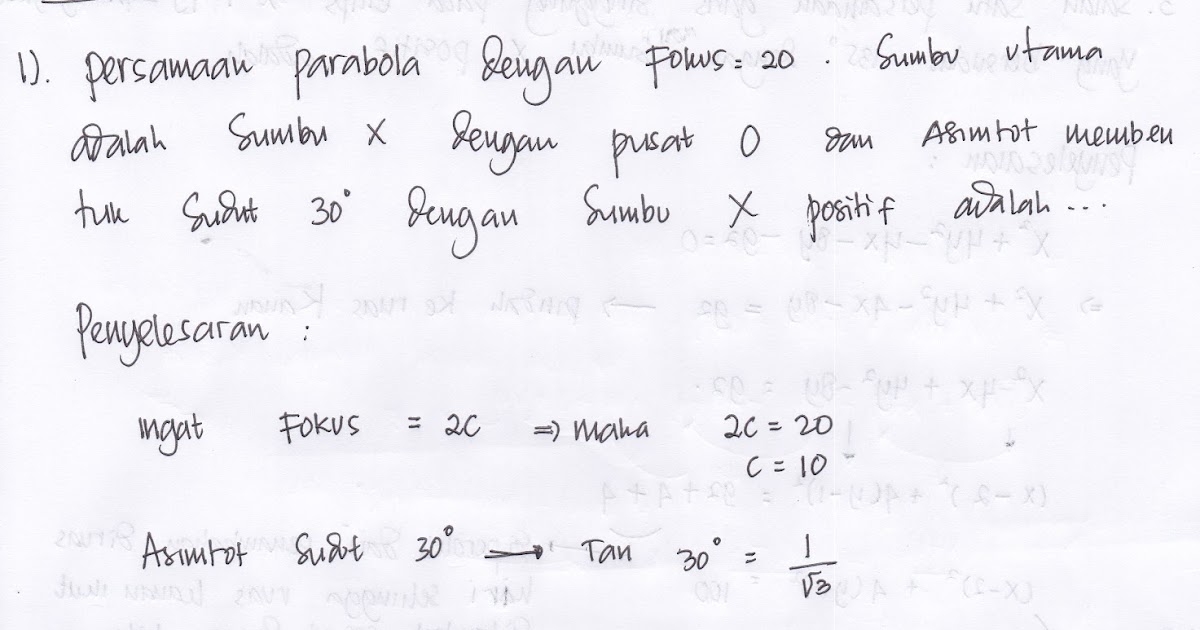 1). persamaan parabola dengan Fokus = 20 . Sumbu utama
adalah Sumbu X dengan pusat O dan Asimtot memben
tuk Sudut 30° dengan Sumbu X positif adalah ...
Penyelesaian :
ingat Fokus = 2C ⇒ maka 2C = 20
C = 10
Asimtot Sudut 30° → Tan 30° = 1/√3